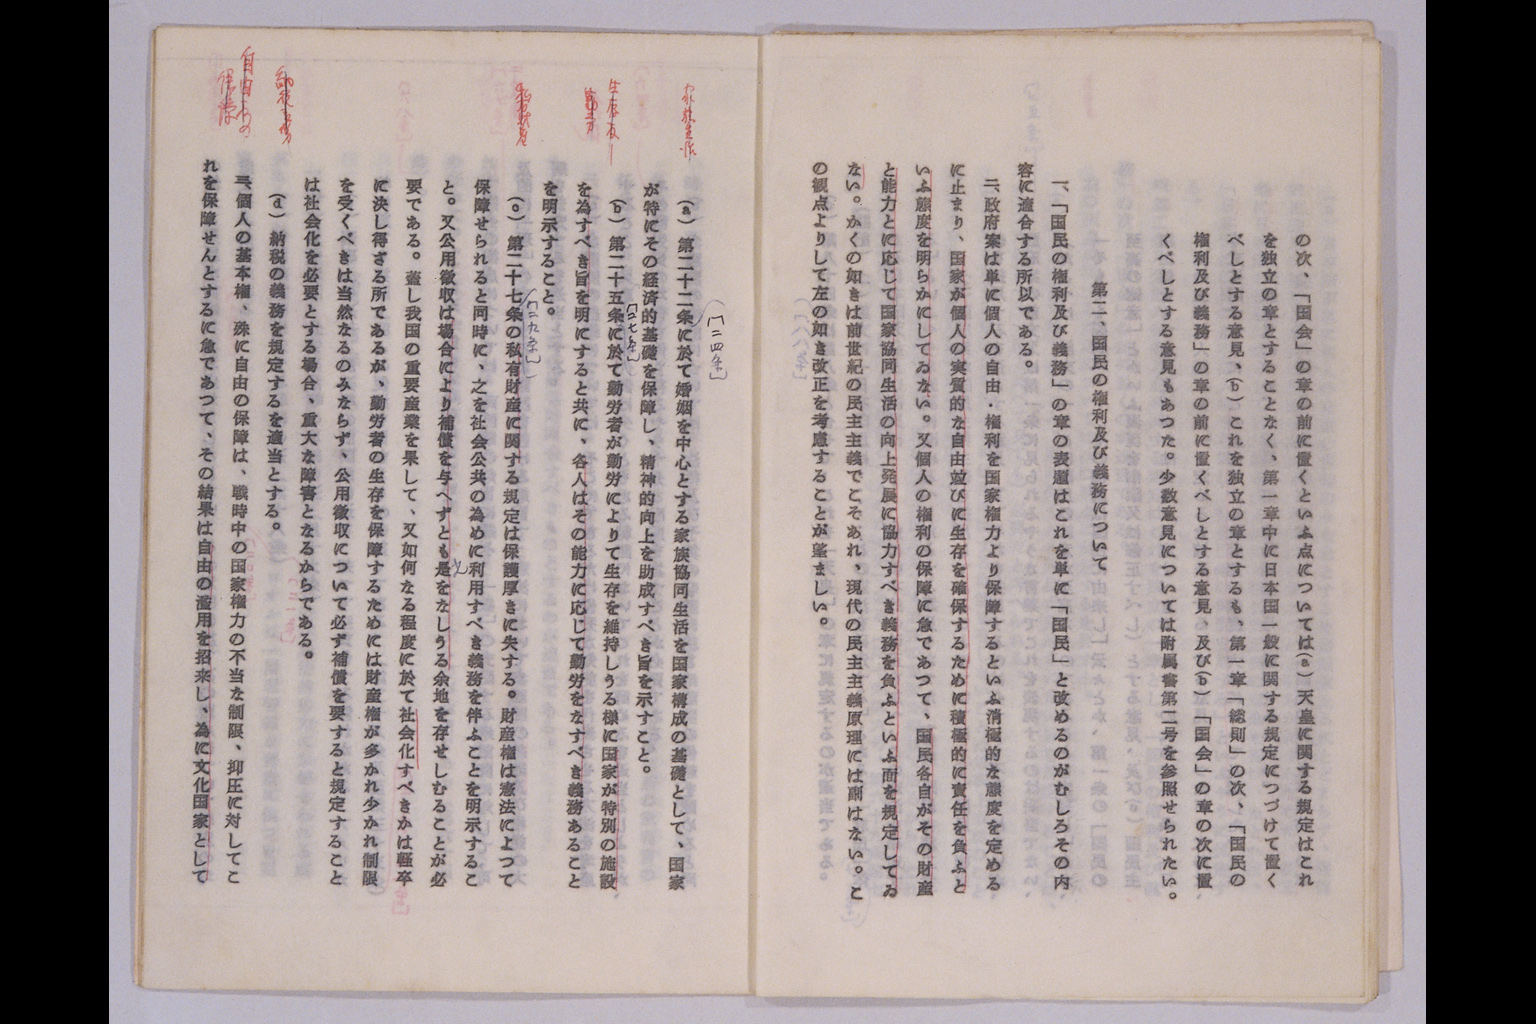 の次、「国会」の章の前に置くといふ点については(a)天皇に関する規定はこれ
を独立の章とすることなく、第一章中に日本国一般に関する規定につづけて置く
べしとする意見、(b)これを独立の章とするも、第一章「総則」の次、「国民の
権利及び義務」の章の前に置くべしとする意見、及び(b)「国会」の章の次に置
くべしとする意見もあつた。少数意見については附属書第二号を参照せられたい。
第二、国民の権利及び義務について
一、「国民の権利及び義務」の章の表題はこれを単に「国民」と改めるのがむしろその内
容に適合する所以である。
二、政府案は単に個人の自由・権利を国家権力より保障するといふ消極的な態度を定める
に止まり、国家が個人の実質的な自由並びに生存を確保するために積極的に責任を負ふと
いふ態度を明らかにしてゐない。又個人の権利の保障に急であつて、国民各自がその財産
と能力とに応じて国家協同生活の向上発展に協力すべき義務を負ふといふ面を規定してゐ
ない。かくの如きは前世紀の民主主義でこそあれ、現代の民主主義原理には副はない。こ
の観点よりして左の如き改正を考慮することが望ましい。
(「二四条」)
家族生活
(a) 第二十二条に於て婚姻を中心とする家族協同生活を国家構成の基礎として、国家
が特にその経済的基礎を保障し、精神的向上を助成すべき旨を示すこと。
生存友
勤労
(「二七条」)
(b) 第二十五条に於て勤労者が勤労によりて生存を維持しうる様に国家が特別の施設
を為すべき旨を明にすると共に、各人はその能力に応じて勤労をなすべき義務あること
を明示すること。
私有財産
(「二九条」)
(c) 第二十七条の私有財産に関する規定は保護厚きに失する。財産権は憲法によつて
保障せられると同時に、之を社会公共の為めに利用すべき義務を伴ふことを明示するこ
と。又公用徴収は場合により補償を与へずとも是をなしうる余地を存せしむることが必
要である。蓋し我国の重要産業を果して、又如何なる程度に於て社会化すべきかは軽卒
に決し得ざる所であるが、勤労者の生存を保障するためには財産権が多かれ少かれ制限
を受くべきは当然なるのみならず、公用徴収について必ず補償を要すると規定すること
は社会化を必要とする場合、重大な障害となるからである。
納税義務
(d) 納税の義務を規定するを適当とする。
自由の
保障
三、個人の基本権、殊に自由の保障は、戦時中の国家権力の不当な制限、抑圧に対してこ
れを保障せんとするに急であつて、その結果は自由の濫用を招来し、為に文化国家として